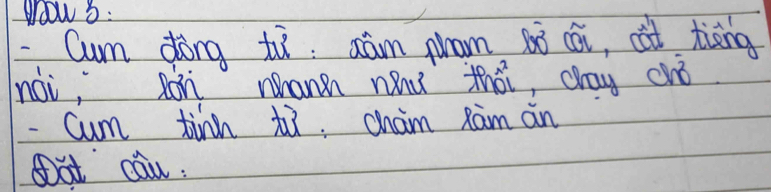 Câu 3:
- Cụm động từ: xâm phạm bờ cõi, cất tiếng
nói, lớn nhanh như thổi, chạy chỗ.
- Cụm tính từ: chăm làm ăn
Đặt câu: